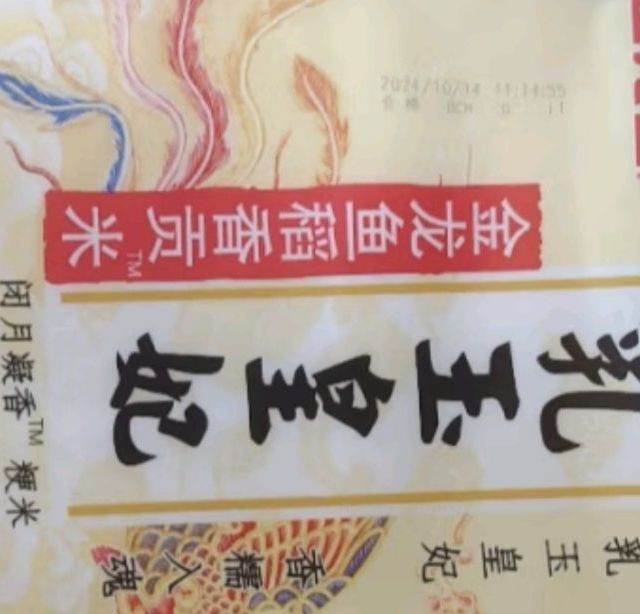 2024/10/14 11:14:55
合格 BCH G 11
金龙鱼稻香贡米™
乳玉皇妃
乳玉皇妃
香糯入魂
闭月凝香™ 粳米